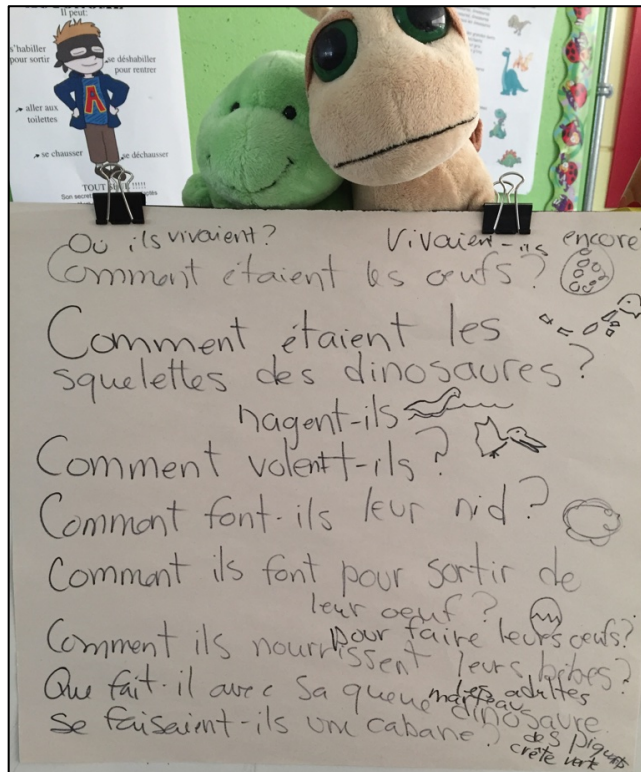 Il peut:
s'habiller
pour sortir
se déshabiller
pour rentrer
A
aller aux
toilettes
se chausser
se déchausser
TOUT
Son secret
Où ils vivaient?
Vivaient-ils encore
Comment étaient les œufs?
Comment étaient les
squelettes des dinosaures?
nagent-ils
Comment volent-ils?
Comment font-ils leur nid?
Comment ils font pour sortir de
leur oeuf?
pour faire leurs œufs?
Comment ils nourrissent leurs bébés?
Que fait-il avec sa queue marteau
les adultes
dinosaure
se faisaient-ils une cabane?
des piquants
crête verte